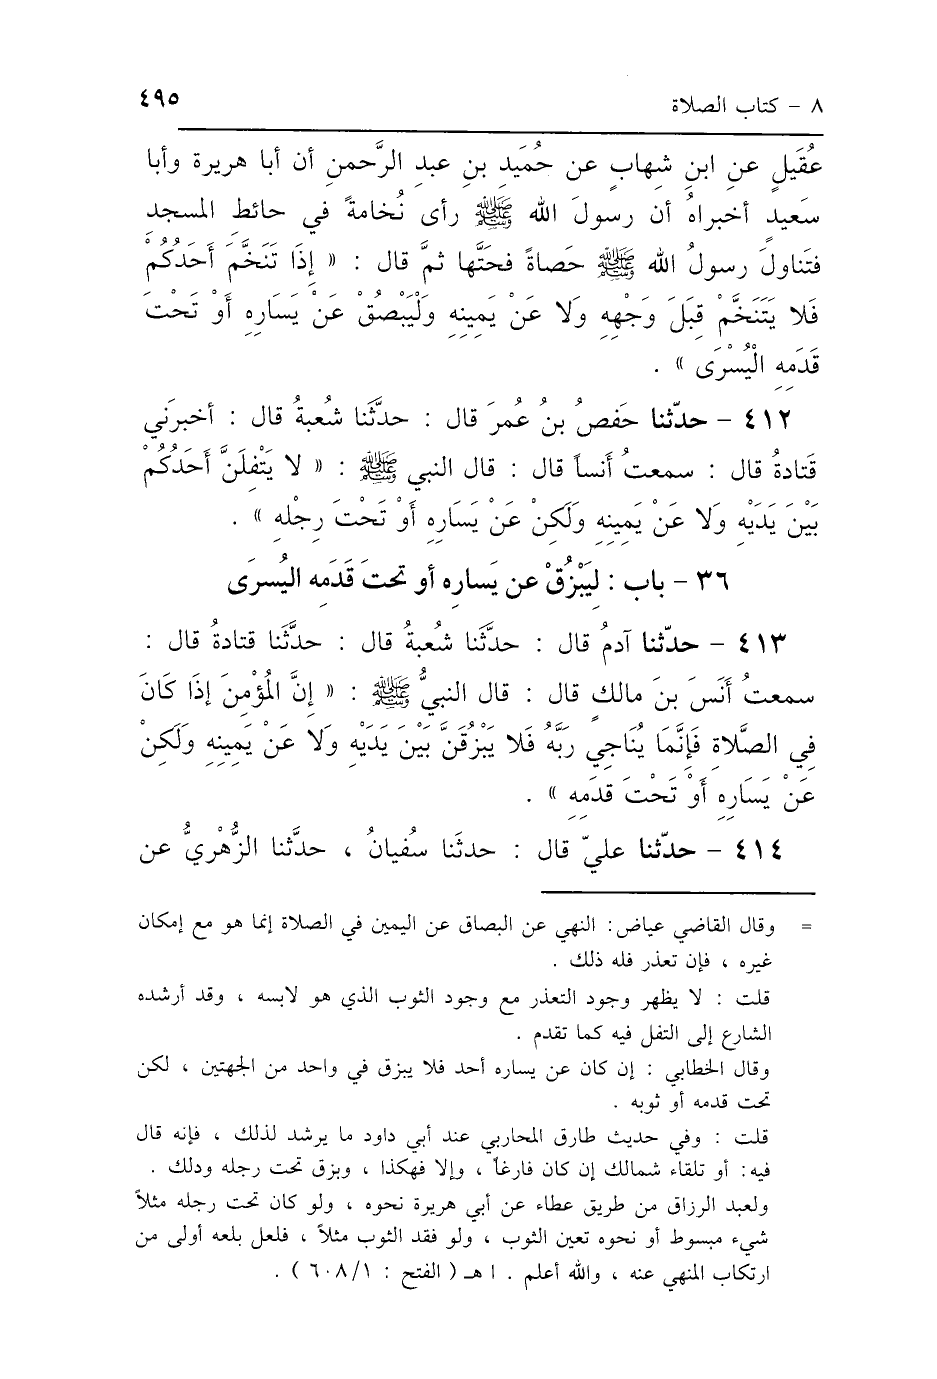 ٨ - كتاب الصلاة ٤٩٥
عُقَيلٍ عنِ ابنِ شهابٍ عن حُمَيدِ بنِ عبدِ الرَّحمنِ أن أبا هريرة وأبا
سَعيدٍ أخبراهُ أن رسولَ الله ﷺ رأى نُخامةً في حائطِ المسجدِ
فتَناولَ رسولُ الله ﷺ حَصاةً فحَتَّها ثمَّ قال : « إِذَا تَنَخَّمَ أَحَدُكُمْ
فَلا يَتَنَخَّمْ قِبَلَ وَجْهِهِ وَلا عَنْ يَمِينِهِ وَلْيَبْصُقْ عَنْ يَسَارِهِ أَوْ تَحْتَ
قَدَمِهِ الْيُسْرَى » .
٤١٢ - حدّثنا حَفصُ بنُ عُمرَ قال : حدَّثَنا شُعبةُ قال : أخبرَني
قَتادةُ قال : سمعتُ أَنَساً قال : قال النبي ﷺ : « لا يَتْفِلَنَّ أَحَدُكُمْ
بَيْنَ يَدَيْهِ وَلا عَنْ يَمِينِهِ وَلَكِنْ عَنْ يَسَارِهِ أَوْ تَحْتَ رِجْلِهِ » .
٣٦ - باب : لِيَبْزُقْ عن يَسارِه أو تحتَ قَدَمِه اليُسرَى
٤١٣ - حدّثنا آدمُ قال : حدَّثَنا شُعبةُ قال : حدَّثَنا قتادةُ قال :
سمعتُ أَنَسَ بنَ مالكٍ قال : قال النبيُّ ﷺ : « إِنَّ الْمُؤْمِنَ إذَا كَانَ
فِي الصَّلاةِ فَإِنَّمَا يُنَاجِي رَبَّهُ فَلا يَبْزُقَنَّ بَيْنَ يَدَيْهِ وَلا عَنْ يَمِينِهِ وَلَكِنْ
عَنْ يَسَارِهِ أَوْ تَحْتَ قَدَمِهِ » .
٤١٤ - حدّثنا عليّ قال : حدثَنا سُفيانُ ، حدَّثنا الزُّهْريُّ عن
= وقال القاضي عياض: النهي عن البصاق عن اليمين في الصلاة إنما هو مع إمكان
غيره ، فإن تعذر فله ذلك .
قلت : لا يظهر وجود التعذر مع وجود الثوب الذي هو لابسه ، وقد أرشده
الشارع إلى التفل فيه كما تقدم .
وقال الخطابي : إن كان عن يساره أحد فلا يبزق في واحد من الجهتين ، لكن
تحت قدمه أو ثوبه .
قلت : وفي حديث طارق المحاربي عند أبي داود ما يرشد لذلك ، فإنه قال
فيه: أو تلقاء شمالك إن كان فارغاً ، وإلا فهكذا ، وبزق تحت رجله ودلك .
ولعبد الرزاق من طريق عطاء عن أبي هريرة نحوه ، ولو كان تحت رجله مثلاً
شيء مبسوط أو نحوه تعين الثوب ، ولو فقد الثوب مثلاً ، فلعل بلعه أولى من
ارتكاب المنهي عنه ، والله أعلم . ا هـ ( الفتح : ٦٠٨/١ ) .